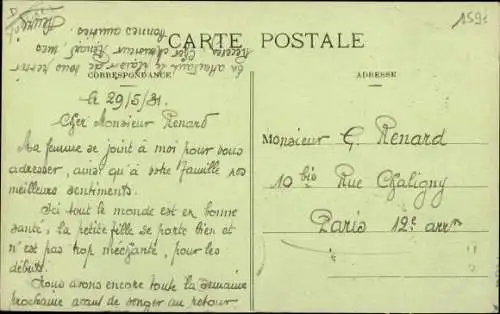 CARTE POSTALE
159
CORRESPONDANCE
ADRESSE
Le 29/5/31.
Cher Monsieur Renard
Ma femme se joint à moi pour vous
adresser, ainsi qu'à votre famille nos
meilleurs sentiments.
Ici tout le monde est en bonne
santé, la petite fille se porte bien et
n'est pas trop méchante, pour les
débuts.
Nous avons encore toute la semaine
prochaine avant de songer au retour
En attendant le plaisir de vous
Recevez Cher Monsieur Renard mes
bonnes amitiés
Monsieur G. Renard
10 bis Rue Chaligny
Paris 12e arrt